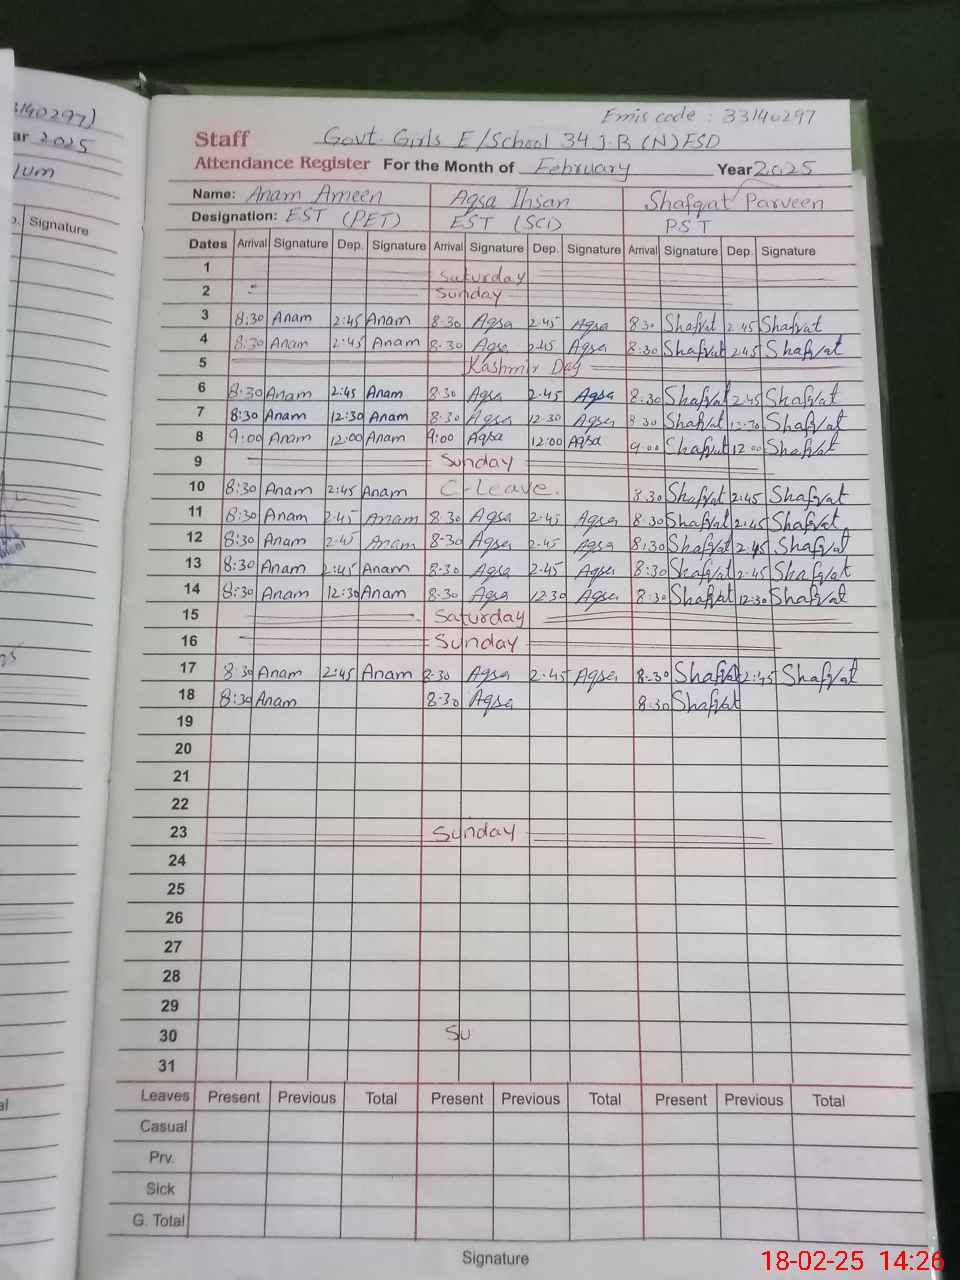 33140297)
ar 2025
lum
Signature
Emis code : 33140297
Staff Govt. Girls E/School 34 J.B (N) FSD
Attendance Register For the Month of February Year 2025
Name: Anam Ameen Aqsa Ihsan Shafqat Parveen
Designation: EST (PET) EST (SCI) PST
Dates Arrival Signature Dep. Signature Arrival Signature Dep. Signature Arrival Signature Dep. Signature
1 Saturday
2 Sunday
3 8:30 Anam 2:45 Anam 8.30 Aqsa 2.45 Aqsa 8.30 Shafqat 2.45 Shafqat
4 8:30 Anam 2:45 Anam 8.30 Aqsa 2.45 Aqsa 8.30 Shafqat 2.45 Shafqat
5 Kashmir Day
6 8:30 Anam 2:45 Anam 8.30 Aqsa 2.45 Aqsa 8.30 Shafqat 2.45 Shafqat
7 8:30 Anam 12:30 Anam 8.30 Aqsa 12.30 Aqsa 8.30 Shafqat 12.30 Shafqat
8 9:00 Anam 12:00 Anam 9:00 Aqsa 12:00 Aqsa 9.00 Shafqat 12.00 Shafqat
9 Sunday
10 8:30 Anam 2:45 Anam C-Leave. 8.30 Shafqat 2:45 Shafqat
11 8:30 Anam 2.45 Anam 8.30 Aqsa 2.45 Aqsa 8.30 Shafqat 2.45 Shafqat
12 8:30 Anam 2.45 Anam 8.30 Aqsa 2.45 Aqsa 8:30 Shafqat 2.45 Shafqat
13 8:30 Anam 2:45 Anam 8.30 Aqsa 2.45 Aqsa 8:30 Shafqat 2.45 Shafqat
14 8:30 Anam 12:30 Anam 8.30 Aqsa 12.30 Aqsa 8:30 Shafqat 12:30 Shafqat
15 Saturday
16 Sunday
17 8:30 Anam 2:45 Anam 8.30 Aqsa 2.45 Aqsa 8.30 Shafqat 2:45 Shafqat
18 8:30 Anam 8.30 Aqsa 8.30 Shafqat
19
20
21
22
23 Sunday
24
25
26
27
28
29
30 Su
31
Leaves Present Previous Total Present Previous Total Present Previous Total
Casual
Prv.
Sick
G. Total
Signature
18-02-25 14:26